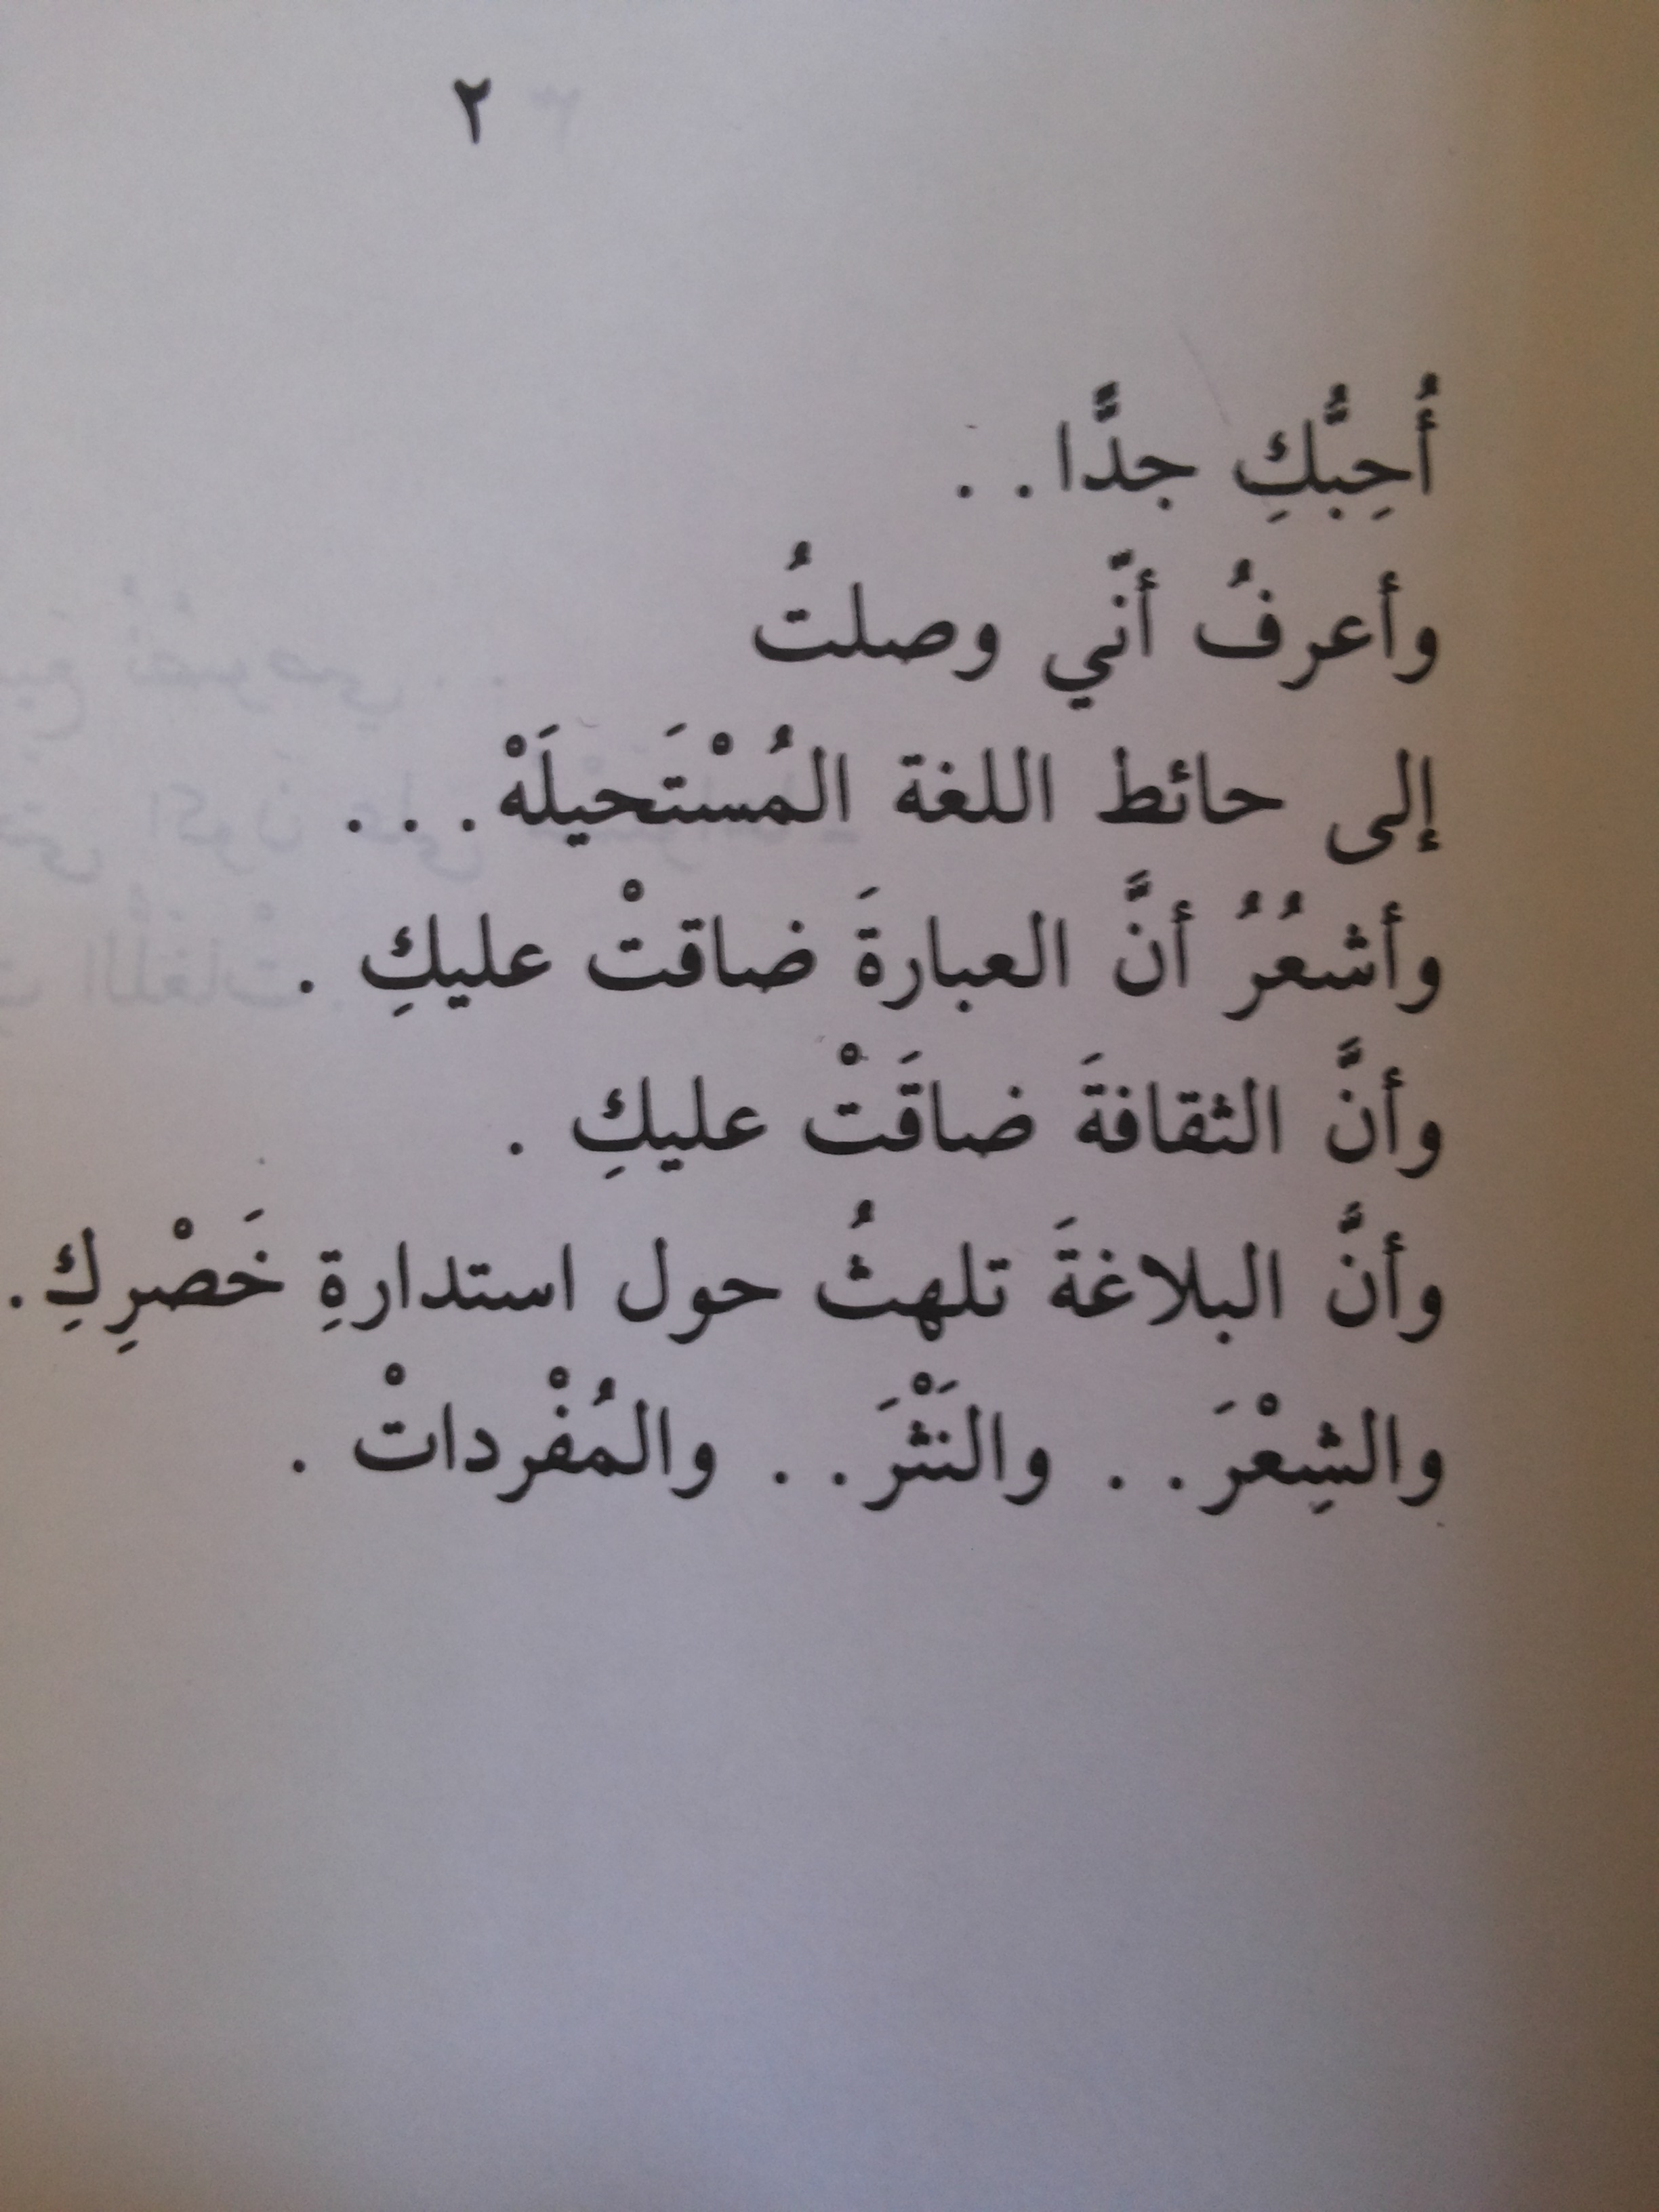 ٢
أُحِبُّكِ جدًّا . .
وأعرفُ أنّني وصلتُ
إلى حائط اللغة المُسْتَحيلَهْ . . .
وأشعُرُ أنَّ العبارةَ ضاقتْ عليكِ .
وأنَّ الثقافةَ ضاقَتْ عليكِ .
وأنَّ البلاغةَ تلهثُ حول استدارةِ خَصْرِكِ .
والشِعْرَ . . والنَثْرَ . . والمُفْرداتْ .